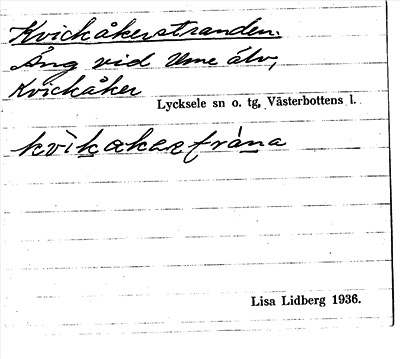 Kvickåkerstranden.
Äng vid Ume älv,
Kvickåker
Lycksele sn o. tg, Västerbottens l.
Lisa Lidberg 1936.